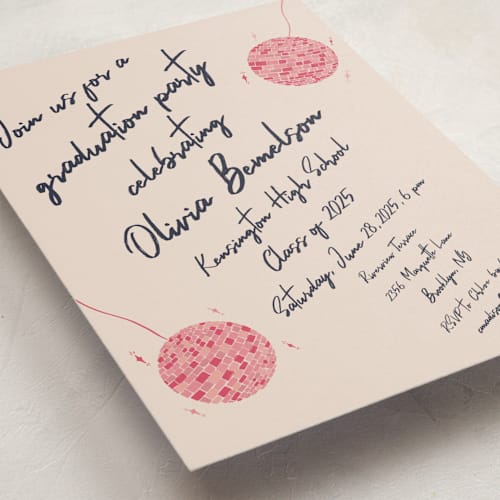 Join us for a
graduation party
celebrating
Olivia Bemelson
Kensington High School
Class of 2025
Saturday, June 28, 2025, 6 pm
Riverview Terrace
2356 Marquette Lane
Brooklyn, NY
RSVP To Chloe